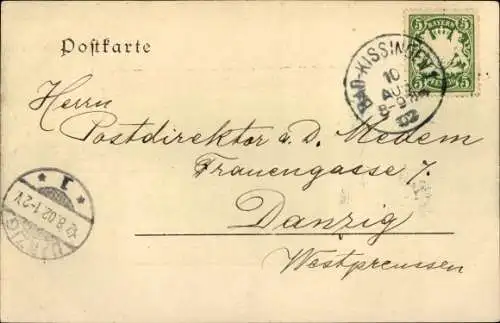 Postkarte
BAYERN
5 5
PFENNIG
BAD-KISSINGEN
10
AUG
8-9
02
Herrn
Postdirektor a. D. Medem
Frauengasse 7.
Danzig
Westpreussen
* 1 *
12.8.02.1-2V
DANZIG